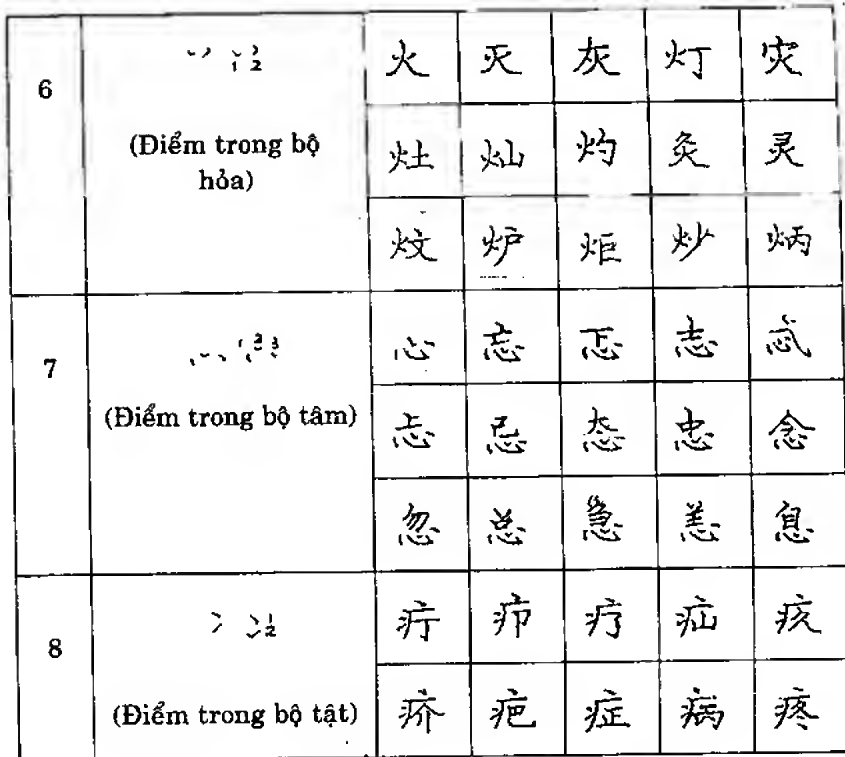 6
1 2
(Điểm trong bộ
hỏa)
火 灭 灰 灯 灾
灶 灿 灼 灸 灵
炆 炉 炬 炒 炳
7
1 2 3
(Điểm trong bộ tâm)
心 忘 忑 志 忒
忐 忌 态 忠 念
忽 总 急 恙 息
8
1 2
(Điểm trong bộ tật)
疔 疖 疗 疝 疚
疥 疤 症 病 疼